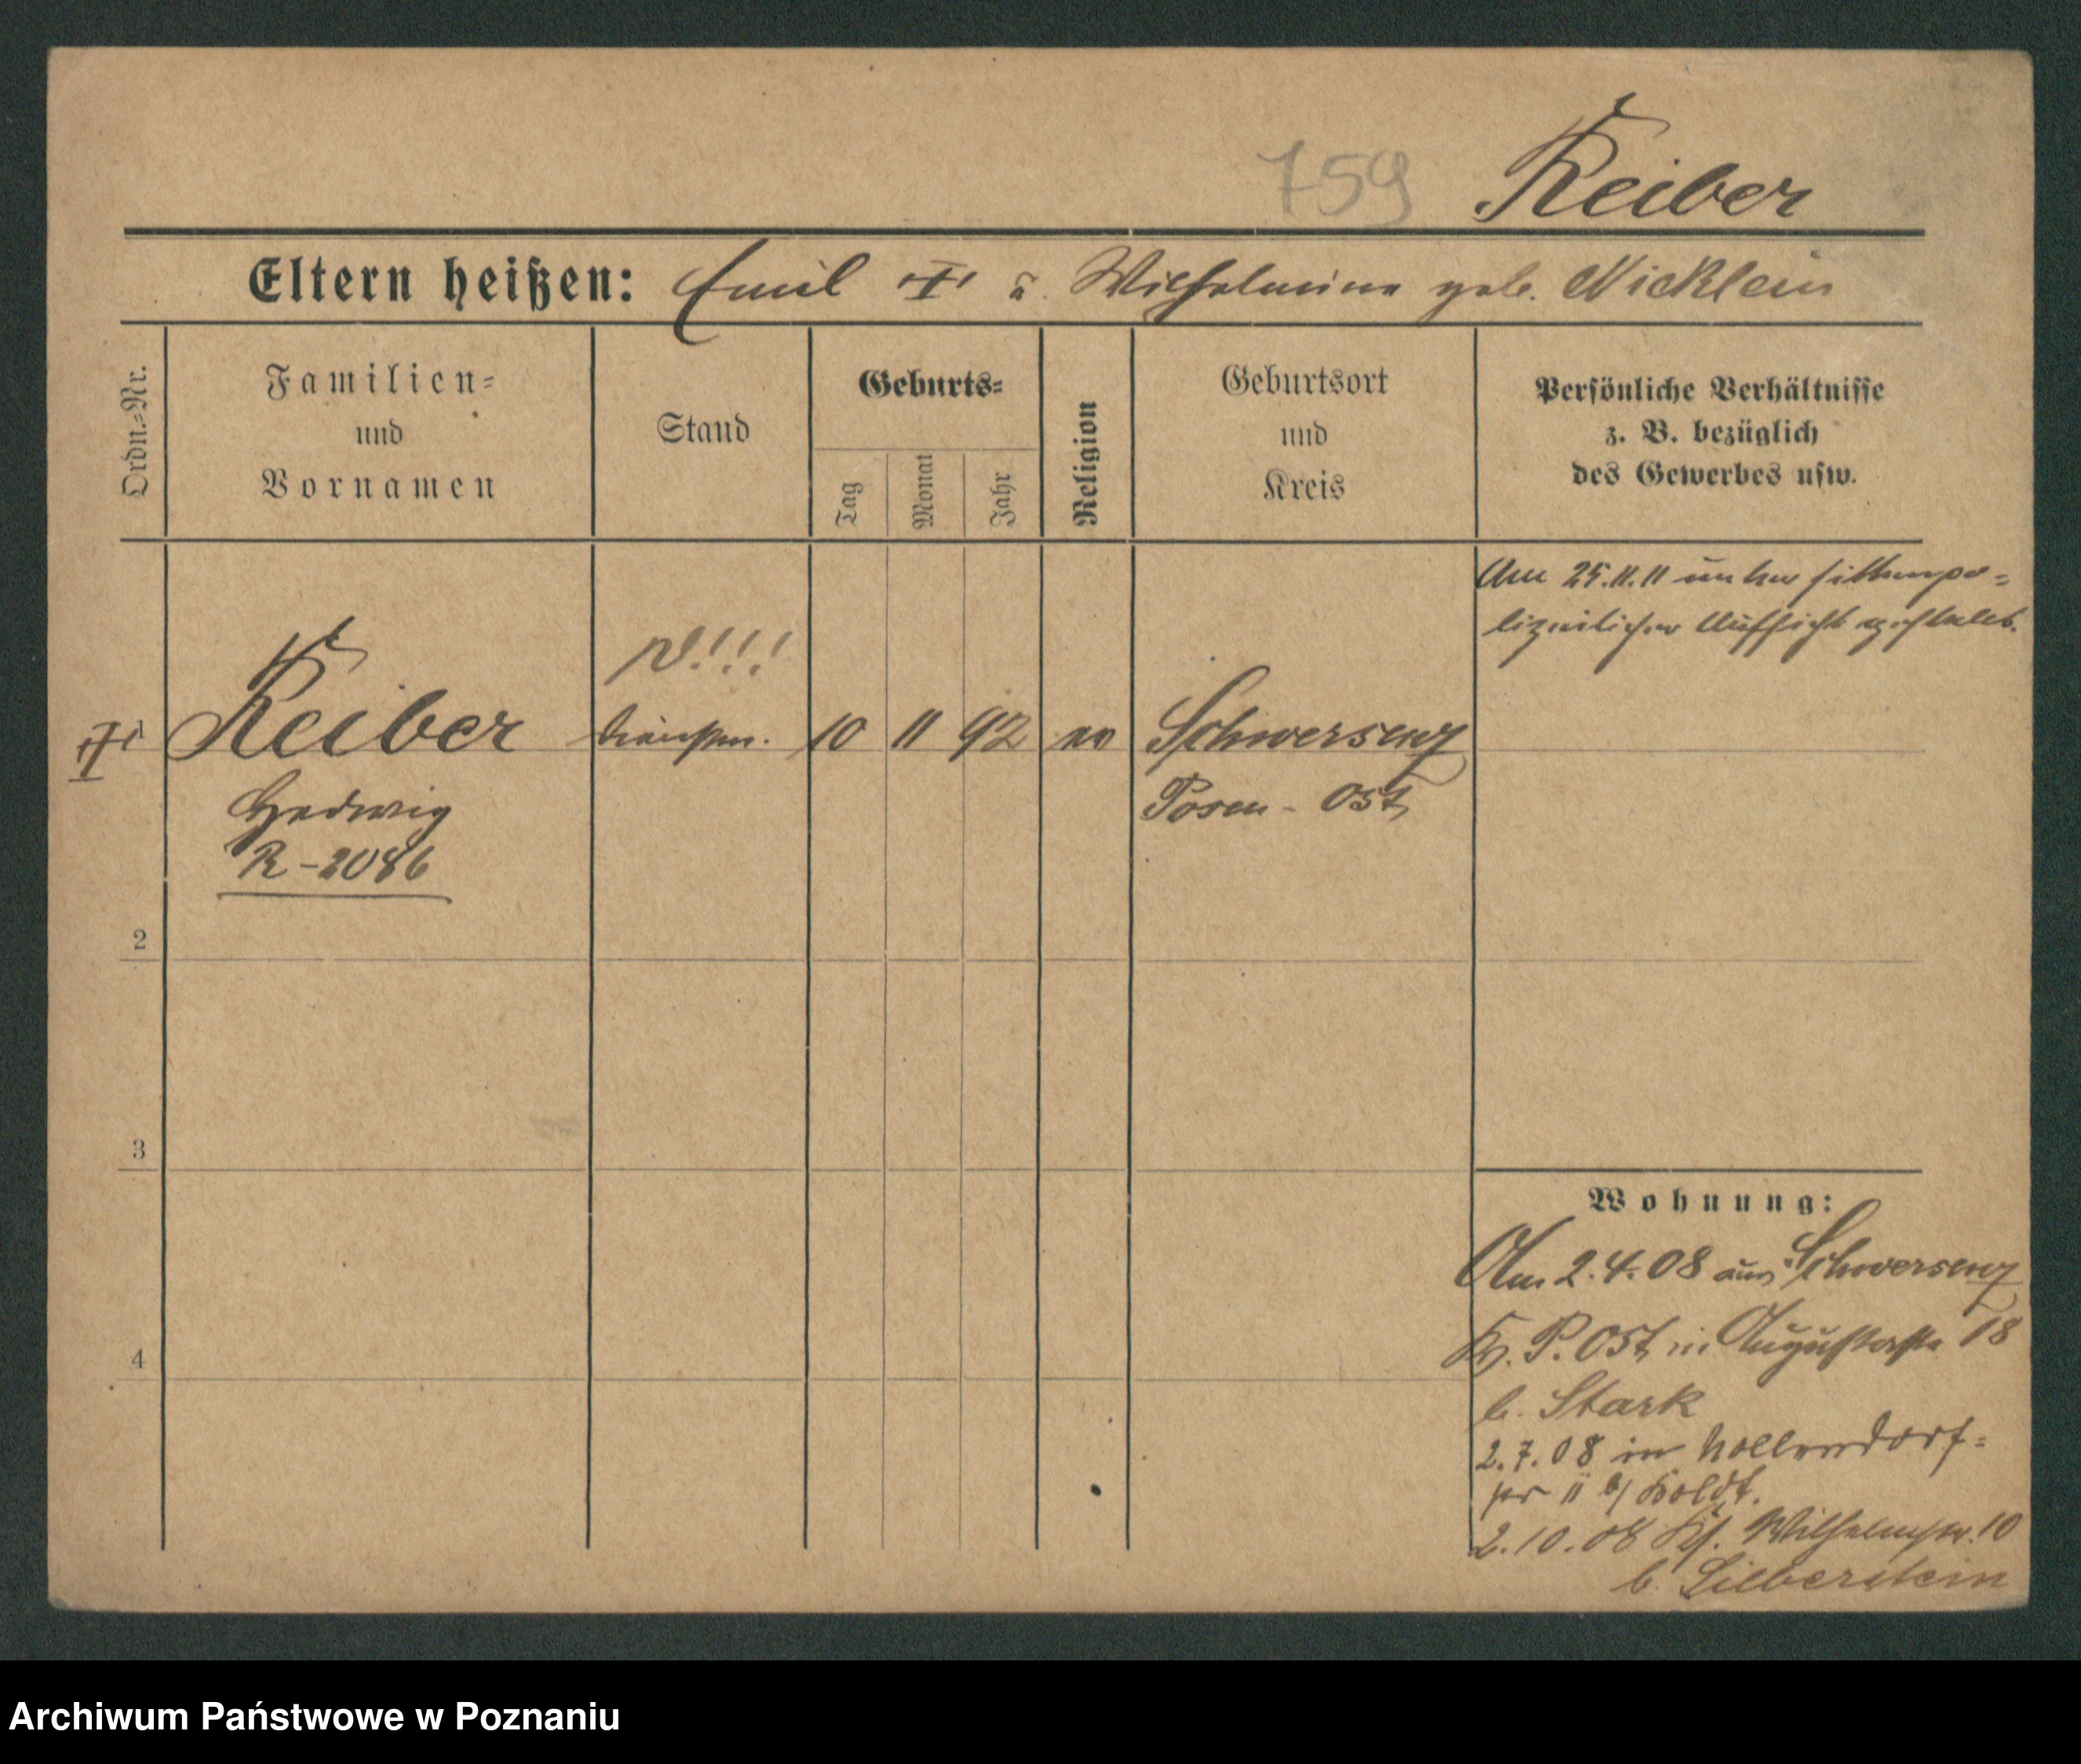 759 Reiber
Eltern heißen: Emil † u. Wilhelmine geb. Nicklein
Ordn.=Nr.
Familien=
und
Vornamen
Stand
Geburts=
Tag
Monat
Jahr
Religion
Geburtsort
und
Kreis
Persönliche Verhältnisse
z. B. bezüglich
des Gewerbes usw.
Am 25.11.11 unter sittenpo=
lizeilicher Aufsicht gestellt.
!!!
Reiber
Dienstm. 10 11 92 ev Schwersenz
Hedwig
Posen - Ost
R-2086
2
3
4
Wohnung:
Am 2.4.08 aus Schwersenz
Kr. P. Ost in Augustastr 18
b. Stark
2.7.08 in Nollendorf=
str 11 b/ Boldt.
2.10.08 Wilhelmstr. 10
b. Silberstein
Archiwum Państwowe w Poznaniu